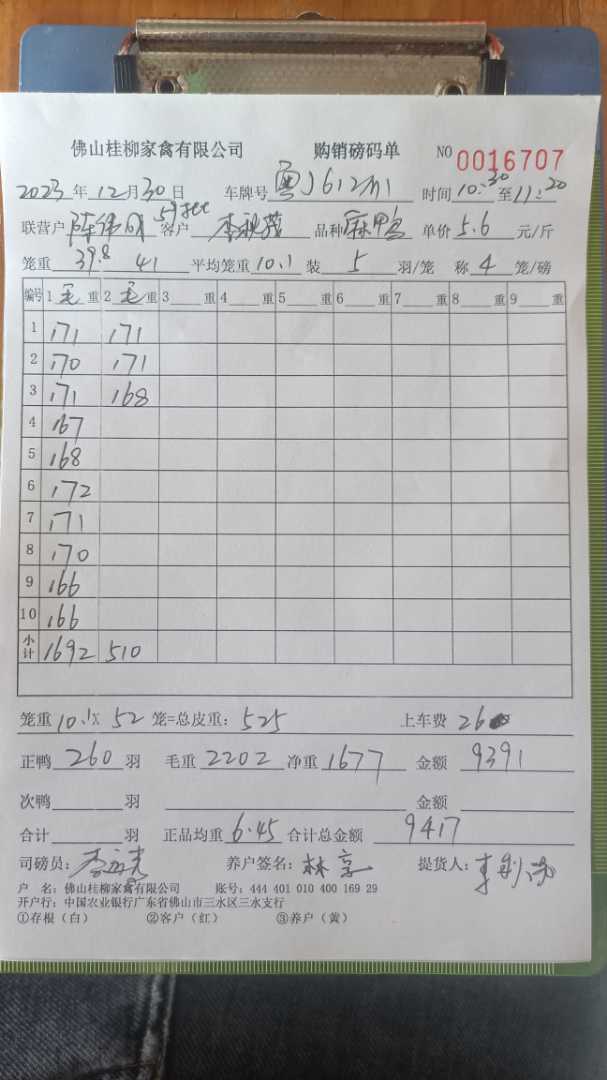 佛山桂柳家禽有限公司 购销磅码单 NO 0016707
2023年12月30日 车牌号 粤J612 时间10:30至11:20
联营户 陈伟 59批 客户 李 品种 麻鸭 单价 5.6 元/斤
笼重 39.8 41 平均笼重 10.1 装 5 羽/笼 称 4 笼/磅
编号 1 毛 重 2 毛 重 3 重 4 重 5 重 6 重 7 重 8 重 9 重
1 171 171
2 170 171
3 171 168
4 167
5 168
6 172
7 171
8 170
9 166
10 166
小计 1692 510
笼重 10.1 X 52 笼=总皮重: 525 上车费 26
正鸭 260 羽 毛重 2202 净重 1677 金额 9391
次鸭 羽 金额
合计 羽 正品均重 6.45 合计总金额 9417
司磅员: 李 养户签名: 林 提货人: 李
户 名: 佛山桂柳家禽有限公司 账号: 444 401 010 400 169 29
开户行: 中国农业银行广东省佛山市三水区三水支行
①存根（白） ②客户（红） ③养户（黄）